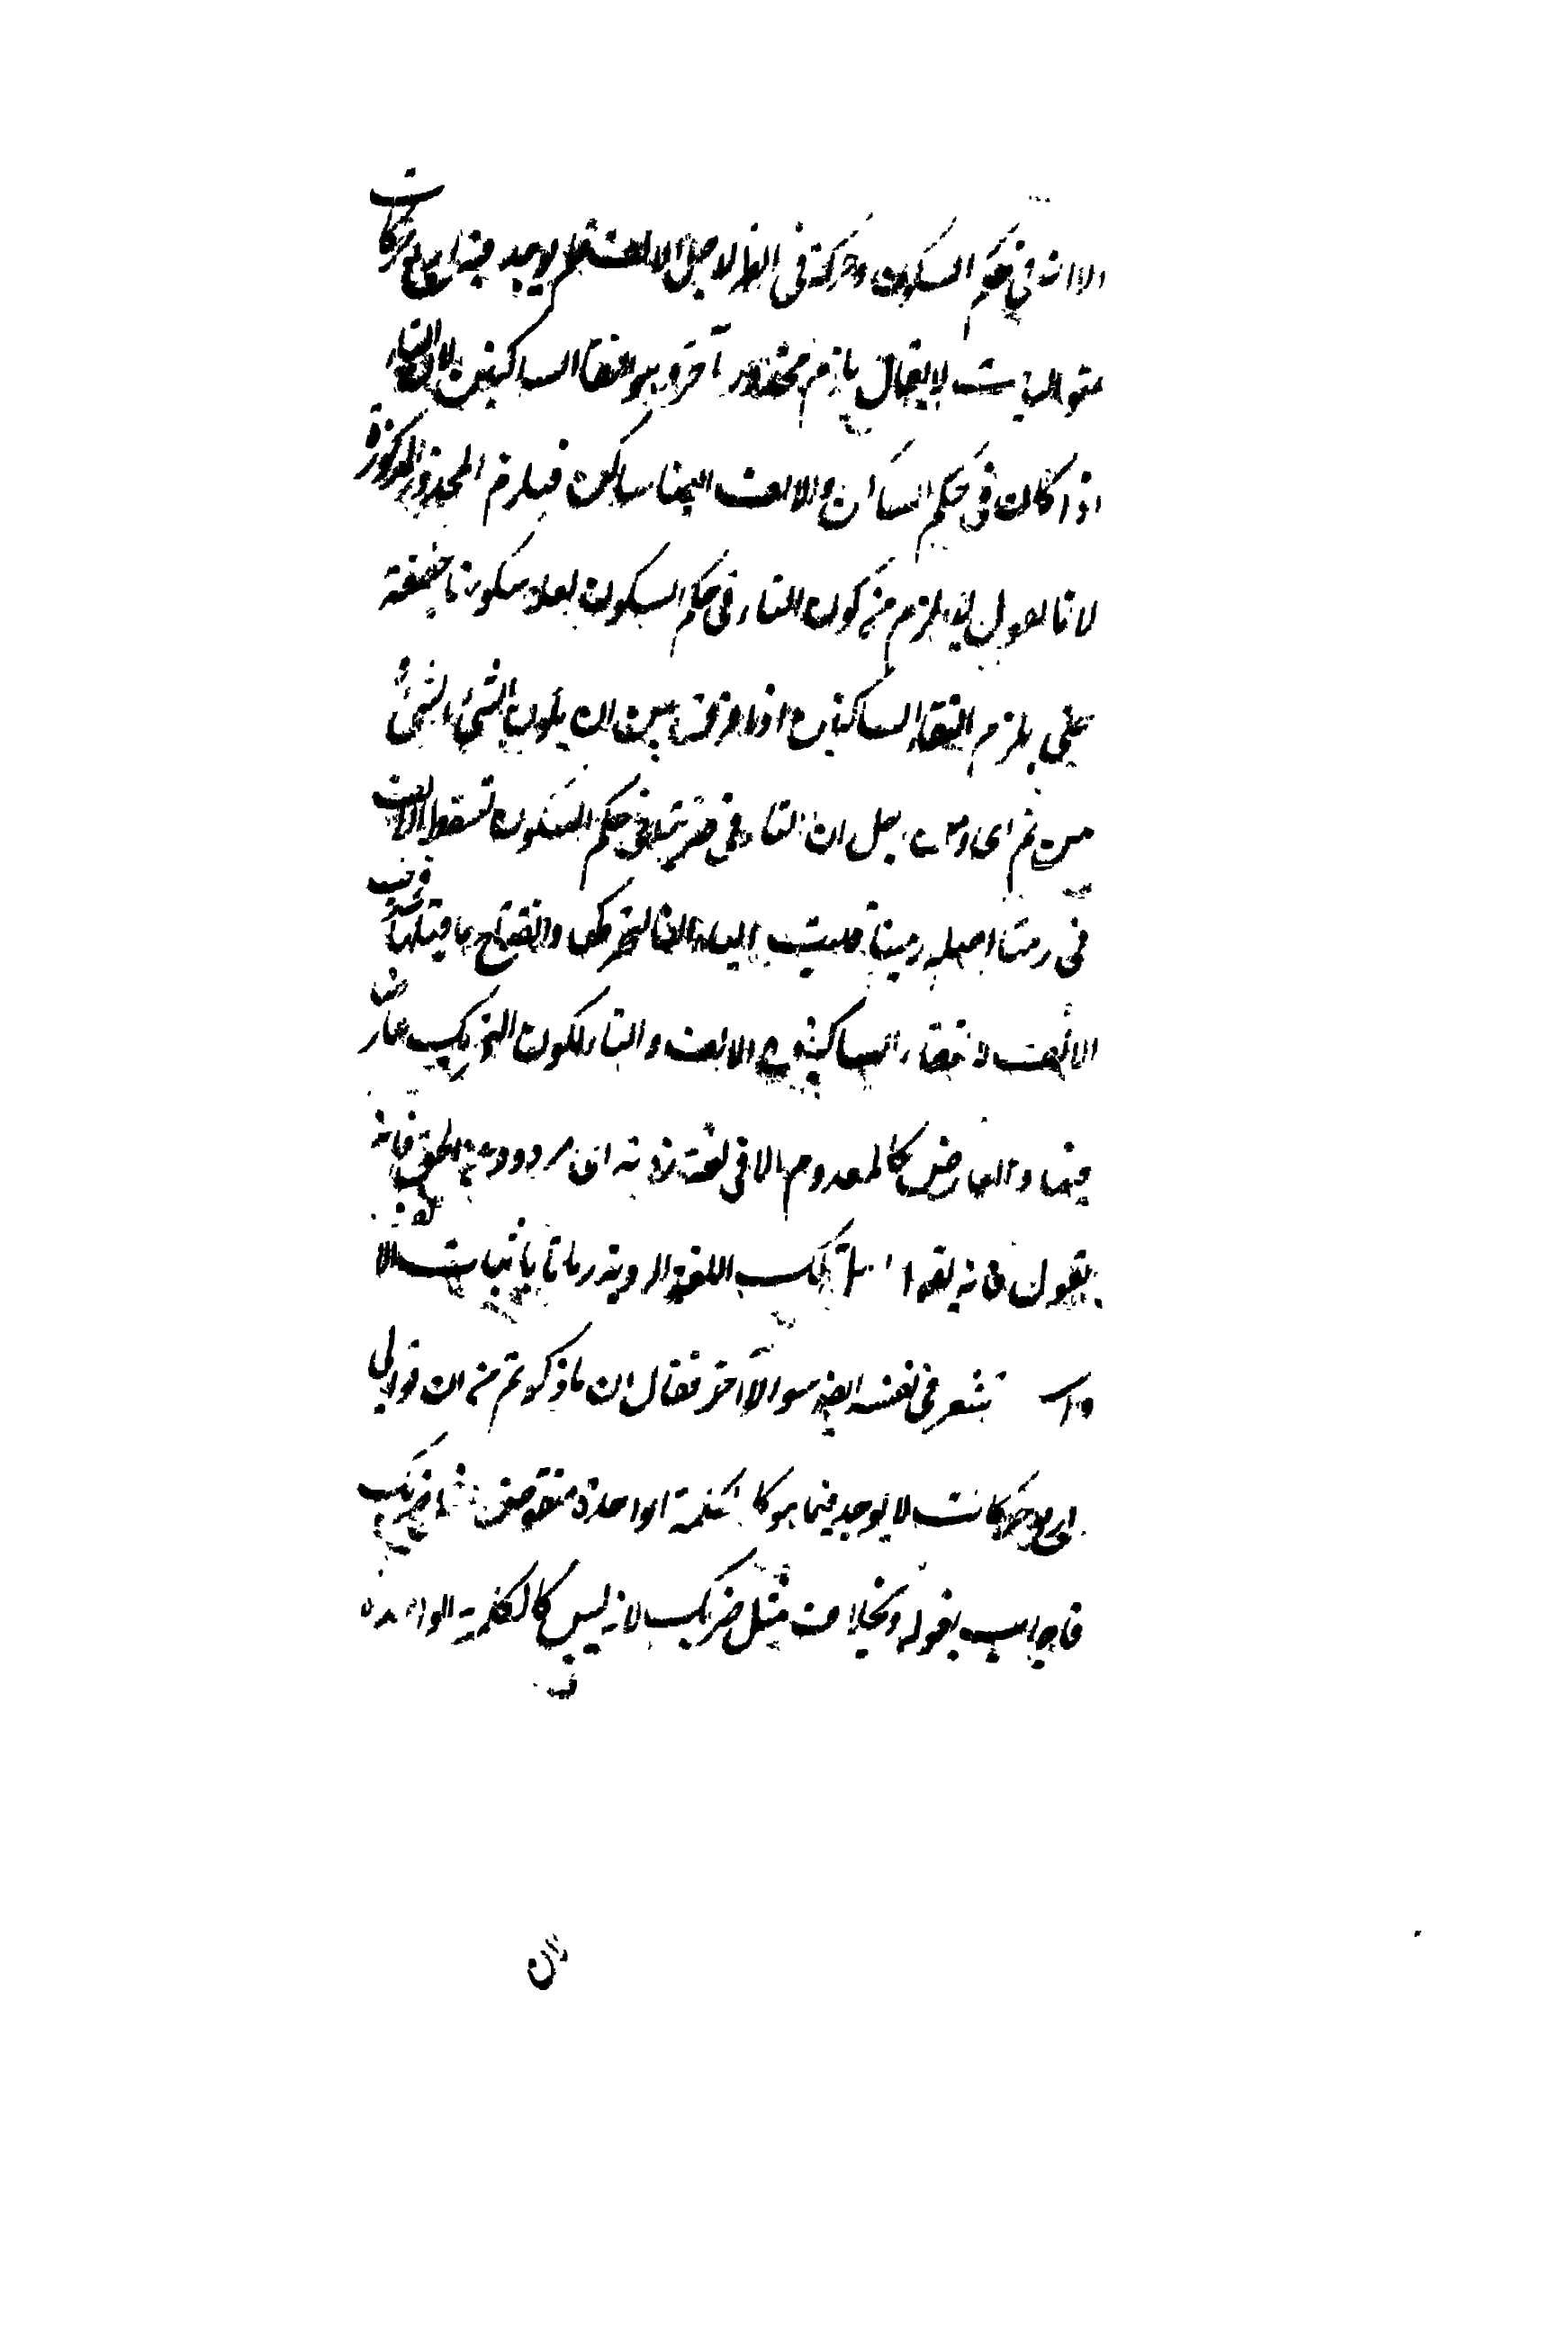 الا انه في حكم السكون وحركة في التاء لاجل الالف فلم يوجد فيه اربع حركات
متواليات لا يقال يلزم محذور آخر وهو التقاء الساكنين لان التاء
اذا كان في حكم الساكن والالف ايضا ساكن فيلزم المحذور المذكورة
لانا نقول لا يلزم من كون التاء في حكم السكون بعد سكونها حقيقة
حتى يلزم التقاء الساكنين اذا فرق بين ان يكون الشيء الشيء
من ثم اى ومن اجل ان التاء في ضربتا في حكم السكون تسقط الالف
في رمتا اصله رميتا قلبت الياء الفا لتحركها وانفتاح ما قبلها فحذفت
الالف لالتقاء الساكنين الالف والتاء لكون التحريك عارض
فيها والعارض كالمعدوم الا في لغة ردية اى مردودة فانه
يقول فانه يقول اهل تلك اللغة الردية رماتا باثبات الالف
تشعر في نفسه ايضا سوالا آخر فقال ان ما ذكرتم من ان توالى
اربع حركات لا يوجد فيما هو كالكلمة الواحدة منقوض بمثل ضربك
فاجاب بقوله وبخلاف مثل ضربك لانه ليس كالكلمة الواحدة